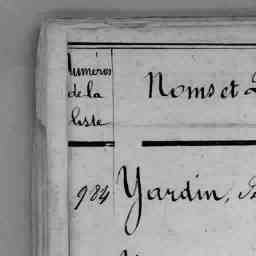 Numéros
de la
liste
Noms et
984 Yardin,